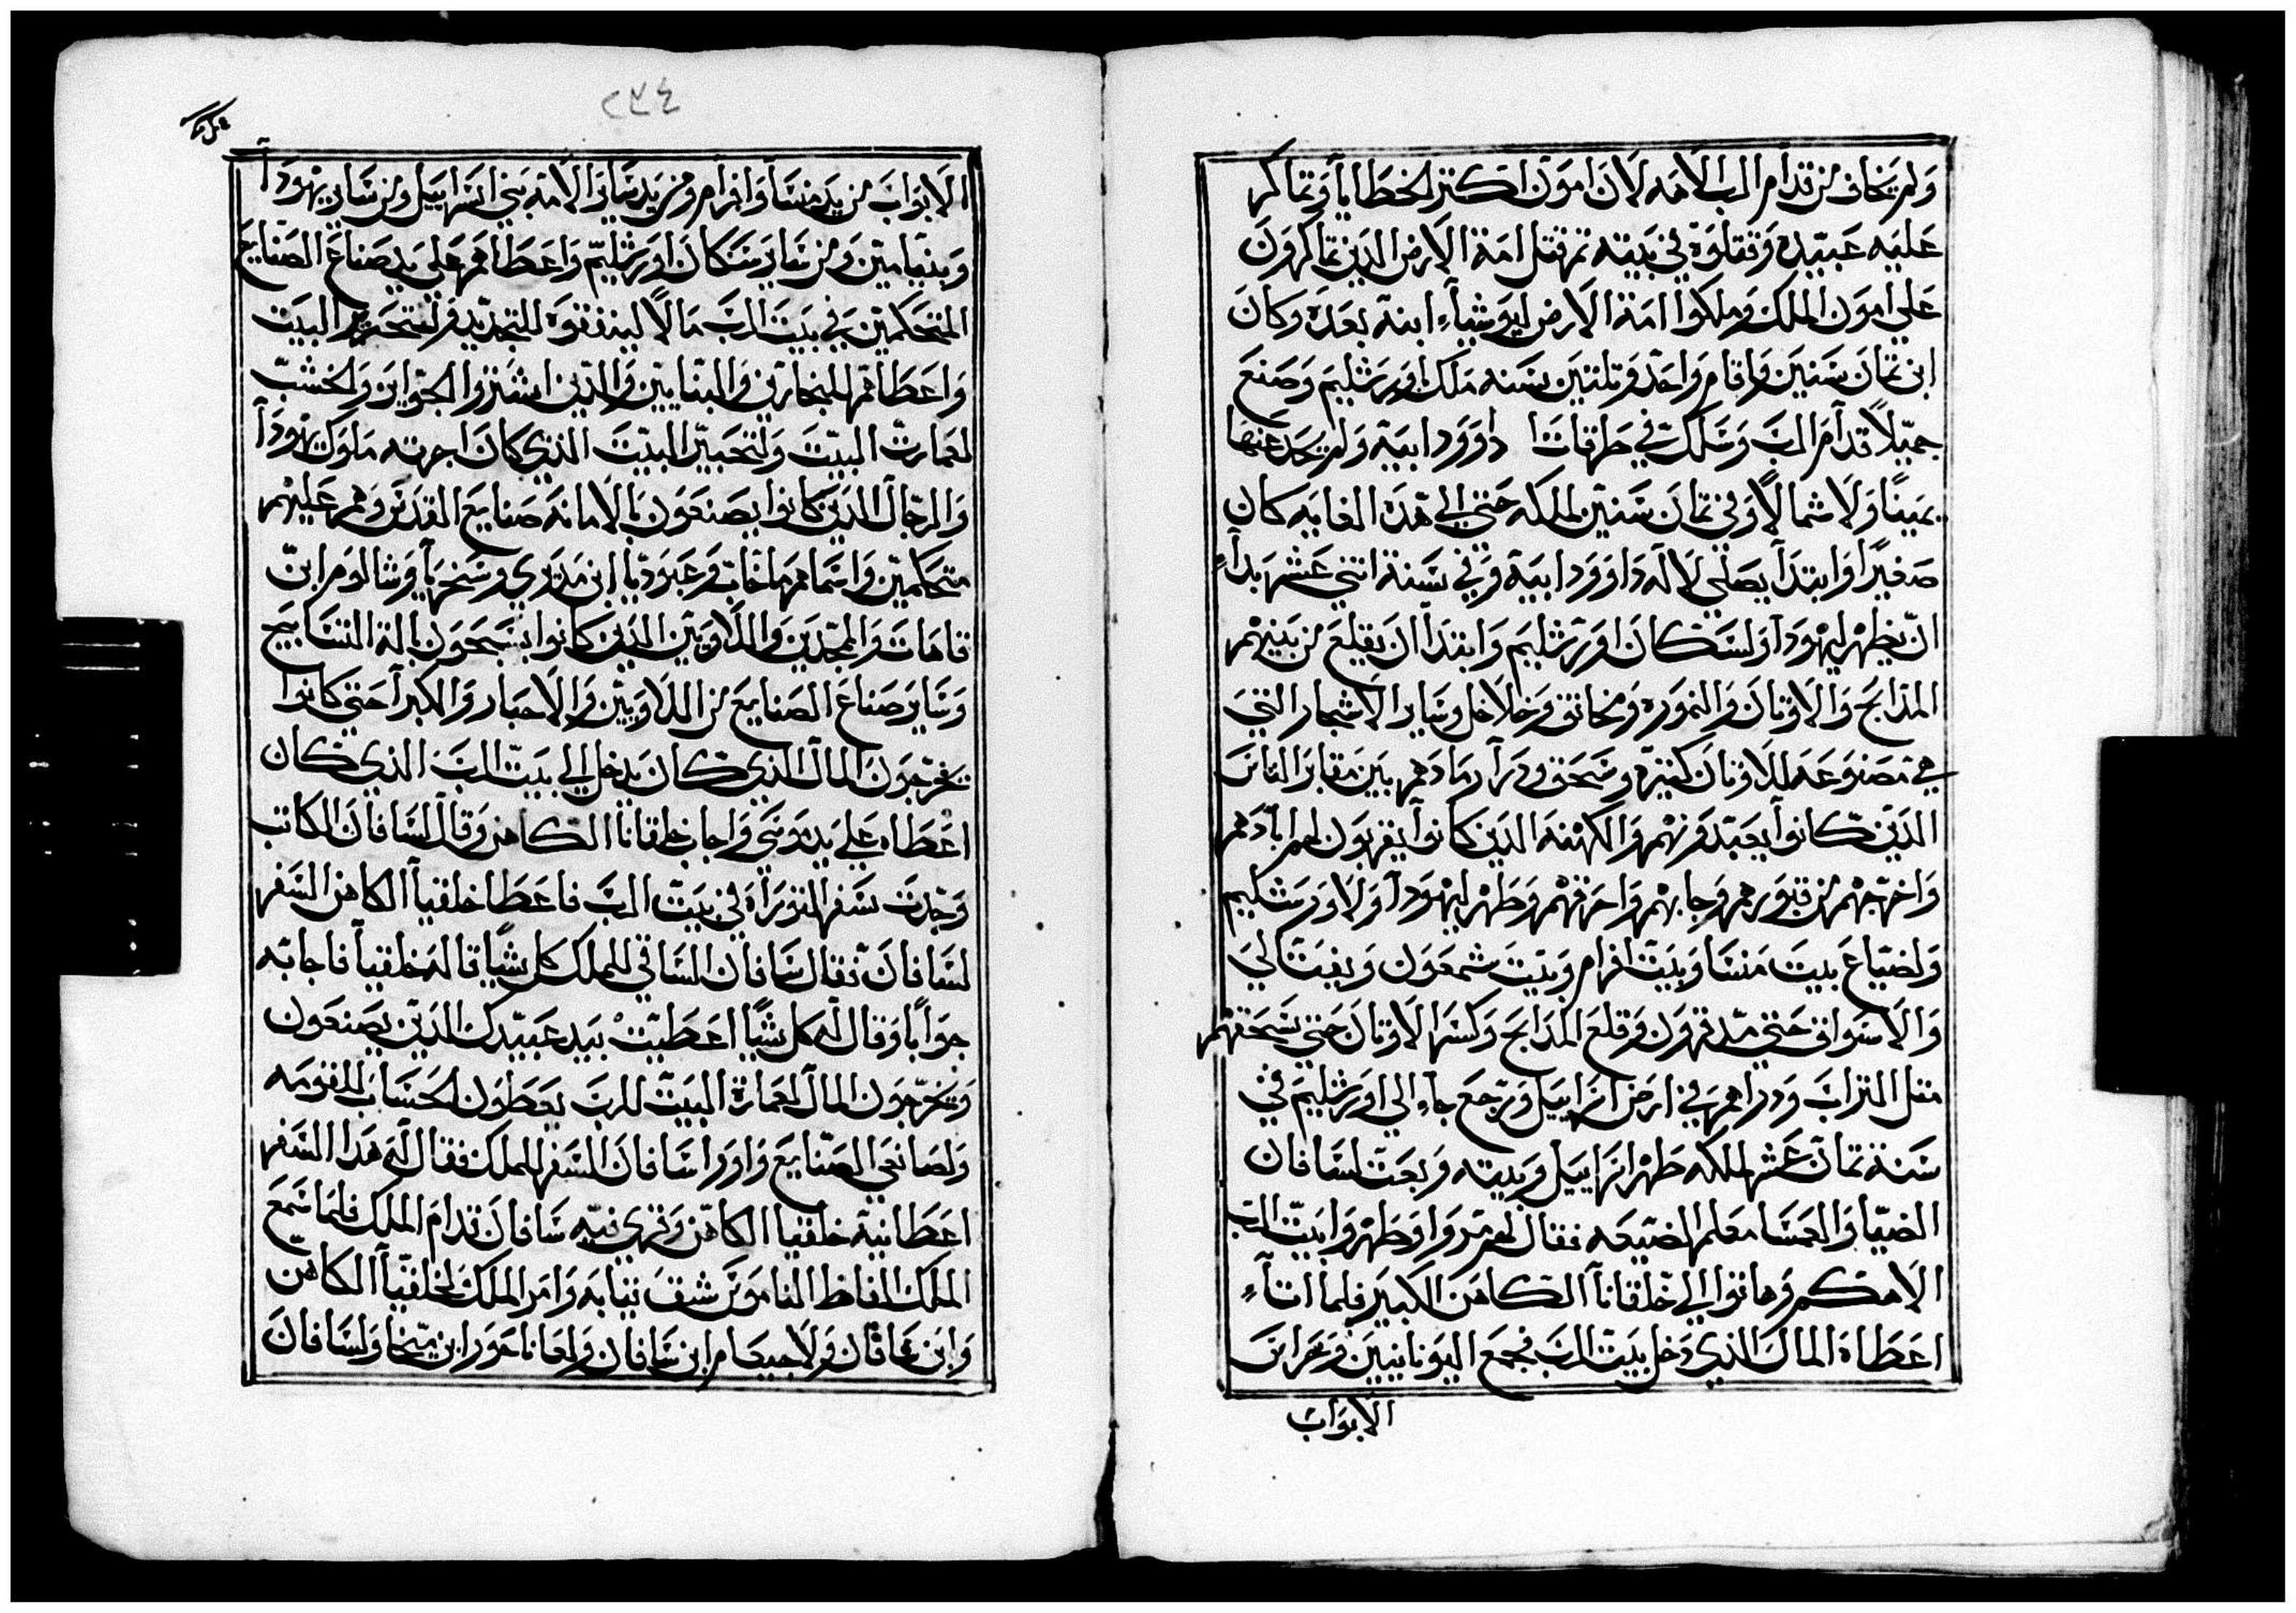 ولم يخاف من قدام الرب الاهه لان امون اكتر الخطايا وتماكر
عليه عبيده وقتلوه في بيته تم قتل امة الارض الدين تماكرون
علي امون الملك وملكوا امة الارض ليوشياء ابنه بعده وكان
ابن تمان سنين واقام واحد وتلتين سنه ملك اورشليم وصنع
جميلاً قدام الرب وسلك في طرقات داوود ابيه ولم يحد عنها
يميناً ولا شمالاً وفي تمان سنين لملكه حتي الي هده الغايه كان
صغيراً وابتدا يصلي لاله داوود ابيه وفي سنة اتني عشر بداء
ان يطهر ليهودا ولسكان اورشليم وابتدا ان يقلع من بينهم
المدابح والاوتان والنموره ومخانق وخلاخل وساير الاشجار التي
هي مصنوعه للاوتان كتيره وسحق ودرا رمادهم بين مقابر الناس
الدين كانوا يعبدونهم والكهنه الدين كانوا يقربون لهم ابادهم
واخرجهم من قبورهم وجابهم واحرقهم وطهر ليهودا ولاورشليم
ولضياع بيت منسا وبيت افرام وبيت شمعون وبفتالي
والاسواق حتي وقلع المدابح وكسر الاوتان حتي يسحقهم
متل التراب ودراهم في ارض اسراييل ورجع جاء الي اورشليم في
سنة تمان عشر لملكه طهر اسراييل وبيته وبعت لسافان
الضيا والعمسا معلم الضيعه فقال لهم مروا وطهروا بيت الرب
الاهكم وهاتوا الي خلقانا الكاهن الكبير فلما اتاء
اعطاه المال الدي دخل بيت الرب فجمع اليونانيين وحراس
الابواب
٢٣٤
الابواب من يد منسا وافرام ومن يد ساير الامه بني اسراييل ومن ساير يهودا
وبنيامين ومن ساير سكان اورشليم واعطاهم علي يد صناع الصنايع
المتحكمين في بيت الرب مالاً لينفقوه للتجديد ولتحرير البيت
واعطاهم للنجارين والبنايين والدين اشتروا الجواير والخشب
لعمارت البيت ولتحبير البيت الدي كان اجرته ملوك يهودا
والرجال الدين كانوا يصنعون بالامانه صنايع القدس وهم عليهم
متحكمين واسماهم ماخات وعبوديا ابن مديري وسخريا وشالوم ابن
قاهات والمجدين واللاويين الدين كانوا يسبحون بالة التسابيح
وساير صناع الصنايع من اللاويين والاحبار والكبرا حتي كانوا
يخرجون المال الدي كان يدخل الي بيت الرب الدي كان
اعطاه علي يد موسي واجاب خلقانا الكاهن وقال لسافان الكاتب
وجدت سفر التوراه في بيت الرب فاعطا خلقيا الكاهن السفر
لسافان فقال سافان الساقي للملك كل شيا قاله خلقيا فاجابه
جواباً وقال له كل شياً اعطيت بيد عبيدك الدين يصنعون
ويخرجون المال لعمارة البيت للرب يعطون الحساب للقومه
ولصانعي الصنايع واورا سافان السفر للملك فقال له هدا السفر
اعطانيه خلقيا الكاهن وقري فيه سافان قدام الملك فلما سمع
الملك الفاظ الناموس شقف تيابه وامر الملك لخلقيا الكاهن
وابن عاقان ولاجيعام ابن سافان ولعاناحور ابن ميخا ولسافان